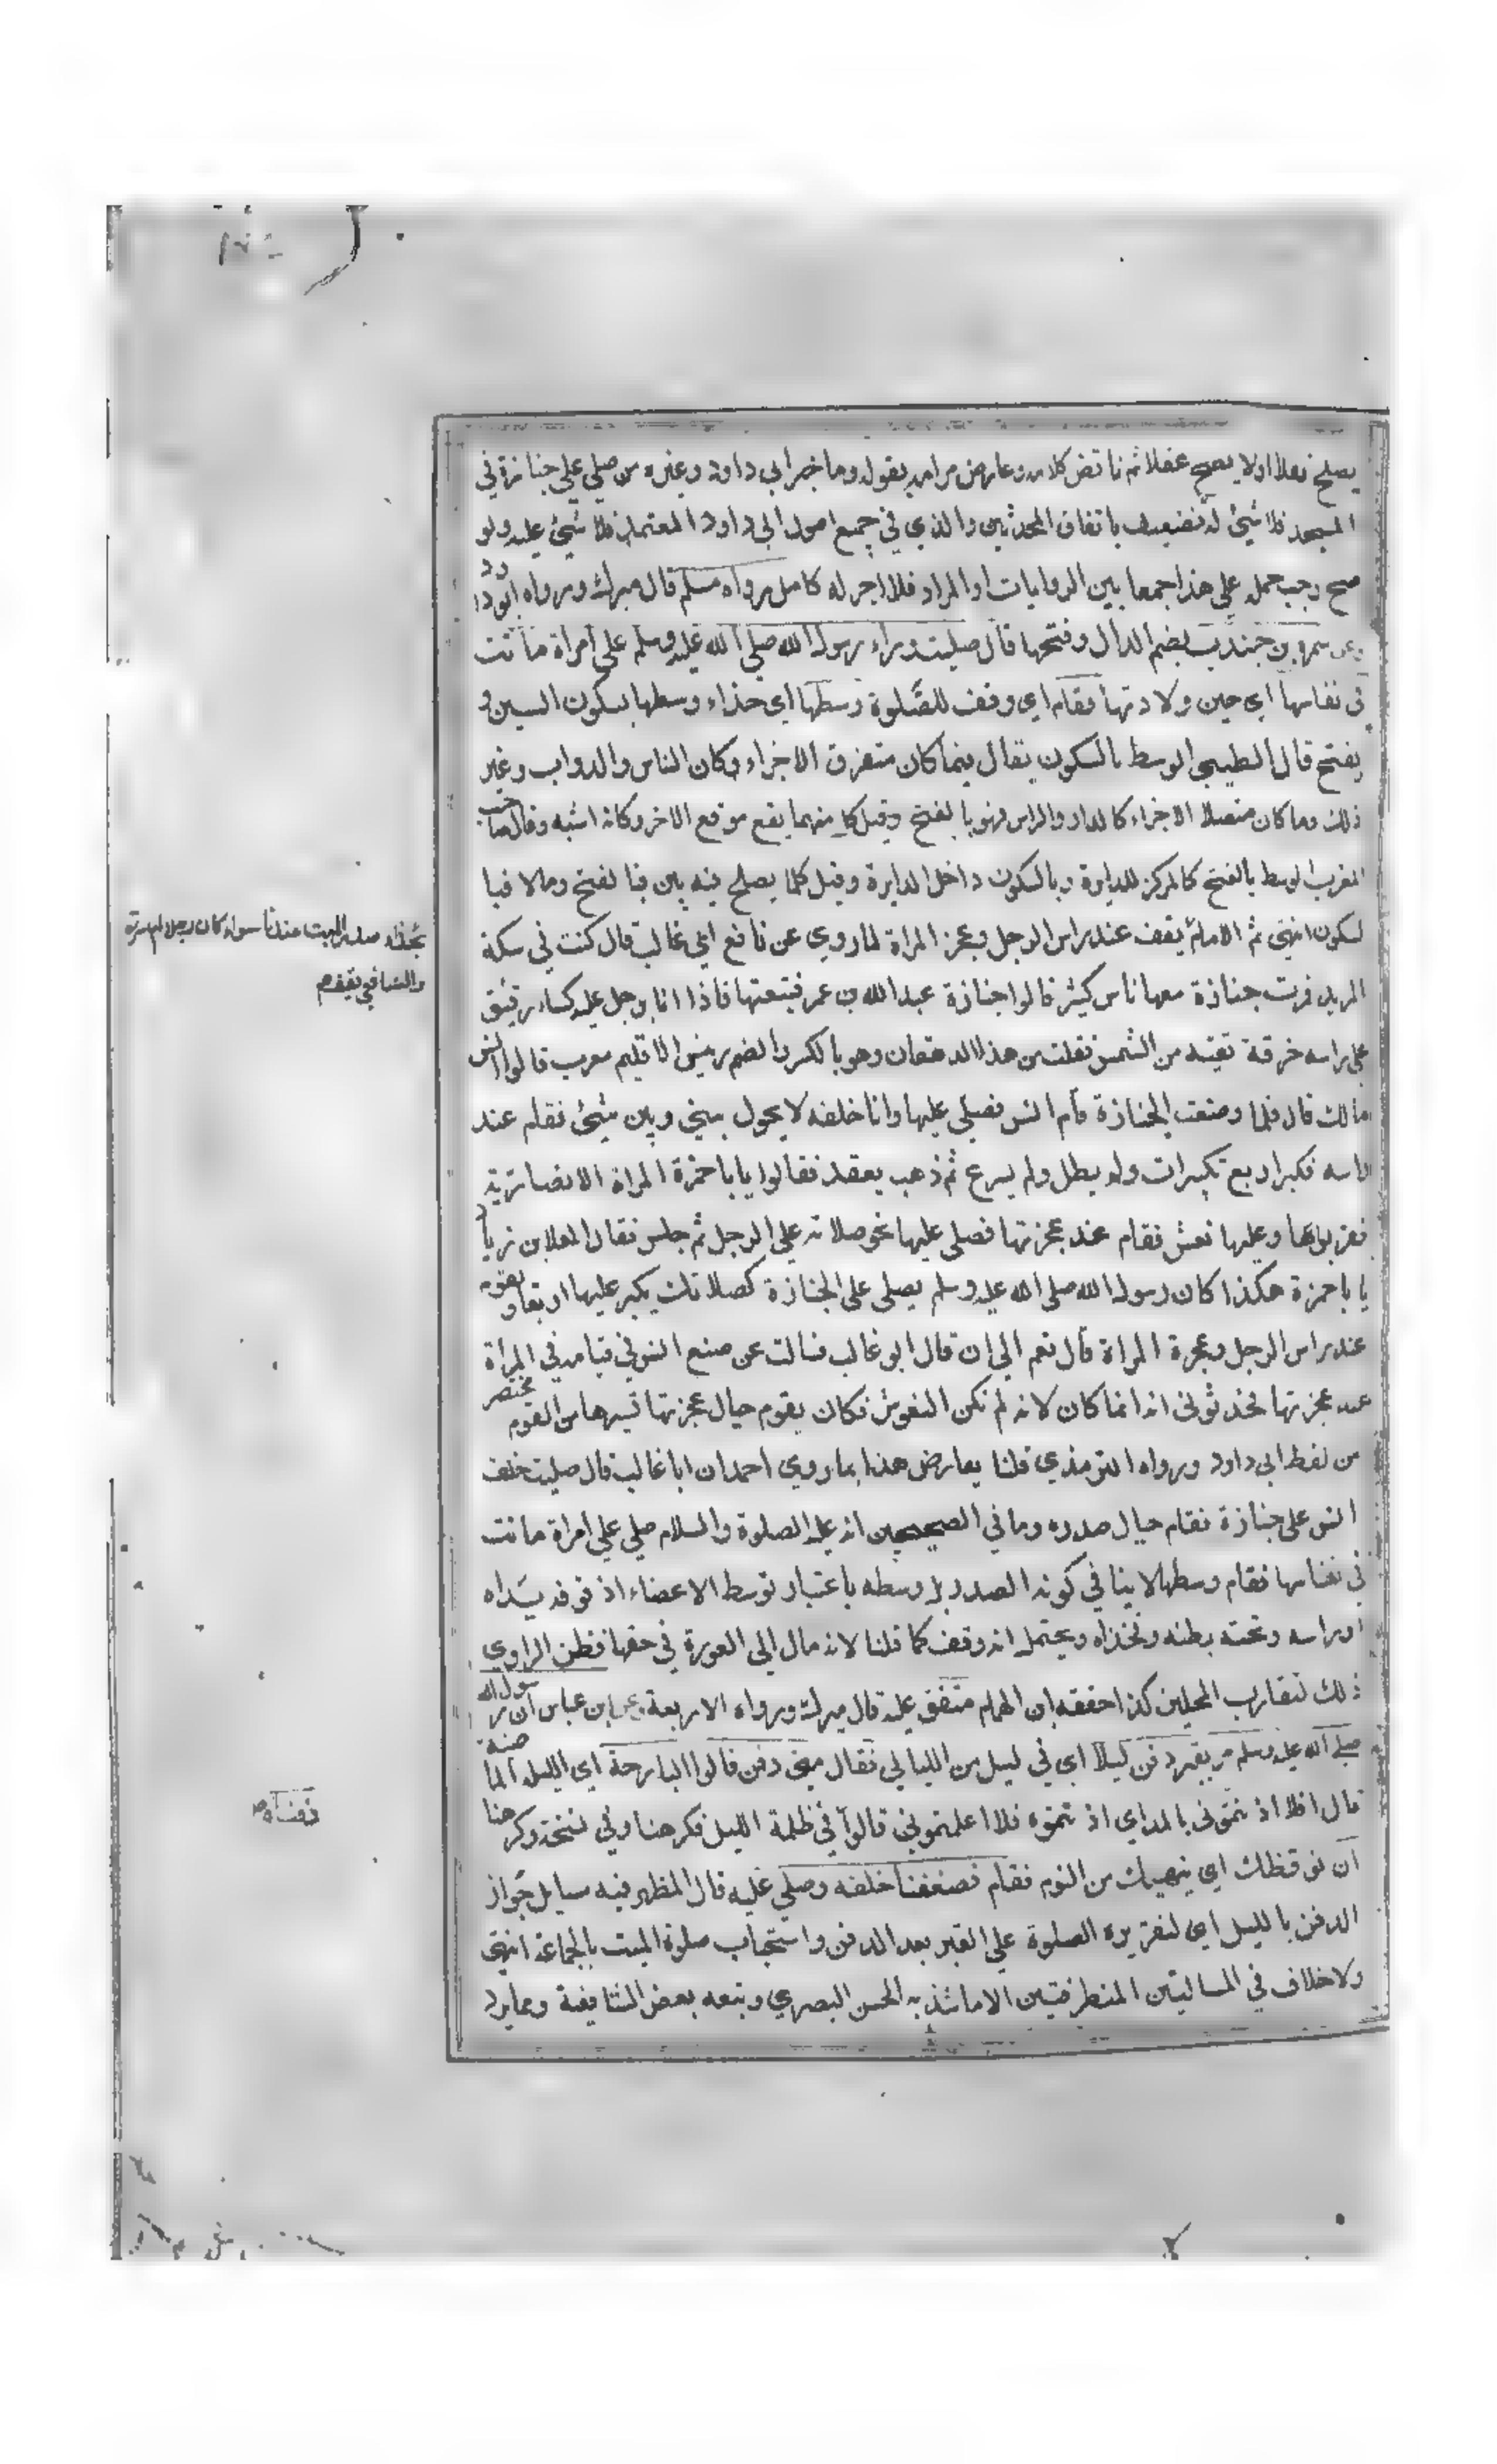 يصلح نعلا اولا يصح عقلا ثم ناقض كلامه وعارض مرامه بقوله وما خبر ابي داود وغيره من صلي علي جنازة في
المسجد فلا شيئ له فضعيف باتفاق المحدثين والذي في جميع اصول ابي داود المعتملة فلا شيئ عليه ولو
صح وجب حمله علي هذا جمعا بين الروايات او المراد فلا اجر له كامل رواه مسلم قال ميرك ورواه ابو داود
وعن سمرة بن جندب بضم الدال وفتحها قال صليت وراء رسول الله صلي الله عليه وسلم علي امراة ماتت
في نفاسها اي حين ولادتها فقام اي وقف للصلوة وسطها اي حذاء وسطها بسكون السين و
يفتح قال الطيبي الوسط بالسكون يقال فيما كان متفرق الاجزاء وكان الناس والدواب وغير
ذلك وما كان متصلا الاجزاء كالدار والراس فهو بالفتح وقيل كل منهما يقع موقع الاخر وكانه اشبه وقال صاحب
المغرب الوسط بالفتح كالمركز للدايرة وبالسكون داخل الدايرة وقيل كلما يصلح فيه بين فبالفتح ومالا فبا
لسكون انتهي ثم الامام يقف عند راس الرجل وعجز المراة لما روي عن نافع ابي غالب قال كنت في سكة
المربد فمرت جنازة معها ناس كثير قالوا جنازة عبد الله بن عمر فتبعتها فاذا انا برجل عليه كساء رقيق
علي راسه خرقة تقيه من الشمس فقلت من هذا الدهقان وهو بالكسر والضم رئيس الاقليم معرب قالوا انس
مالك قال فلما وضعت الجنازة قام انس فصلي عليها وانا خلفه لا يحول بيني وبين شيئ فقام عند
راسه فكبر اربع تكبيرات ولم يطل ولم يسرع ثم ذهب يقعد فقالوا يا با حمزة المراة الانصارية
فقربوها وعليها نعش فقام عند عجزتها فصلي عليها نحو صلاته علي الرجل ثم جلس فقال العلا بن زياد
يا با حمزة هكذا كان رسول الله صلي الله عليه وسلم يصلي علي الجنازة كصلاتك يكبر عليها اربعا ويقوم
عند راس الرجل وعجزة المراة قال نعم الي ان قال ابو غالب فسالت عن صنع انس في قيامه في المرأة
عند عجزتها فحدثوني انه انما كان لانه لم تكن النعوش فكان يقوم حيال عجزتها تسيرها من القوم مختصر
من لفظ ابي داود ورواه الترمذي قلنا يعارض هذا بما روي احمد ان ابا غالب قال صليت خلف
انس علي جنازة فقام حيال صدره وما في الصحيحين انه عليه الصلوة والسلام صلي علي امراة ماتت
في نفاسها فقام وسطها لا ينافي كونه الصدر بل وسطه باعتبار توسط الاعضاء اذ فوقه يداه
وراسه وتحته بطنه وفخذاه ويحتمل انه وقف كما قلنا لانه مال الي العورة في حقها فظن الراوي
ذلك لتقارب المحلين كذا حققه ابن الهمام متفق عليه قال ميرك ورواه الاربعة وعن ابن عباس ان رسول الله
صلي الله عليه وسلم مر بقبر دفن ليلا اي في ليل من الليالي فقال متي دفن قالوا البارحة اي الليلة الماضية
قال افلا اذنتموني بالمد اي اذنتموه فلا اعلمتموني قالوا في ظلمة الليل فكرهنا وفي نسخة وكرهنا
ان نوقظك اي ينبهك من النوم فقام فصففنا خلفه وصلي عليه قال المظهر فيه مسايل جواز
الدفن بالليل اي لتقريره الصلوة علي القبر بعد الدفن واستحباب صلوة الميت بالجماعة انتهي
ولا خلاف في المسالتين المتطرفتين الا ما شذ به الحسن البصري وتبعه بعض الشافعية ومما يرد
بحذاء صدر الميت عندنا سواء كان رجلا ام
والشافي يقدم
دفناه